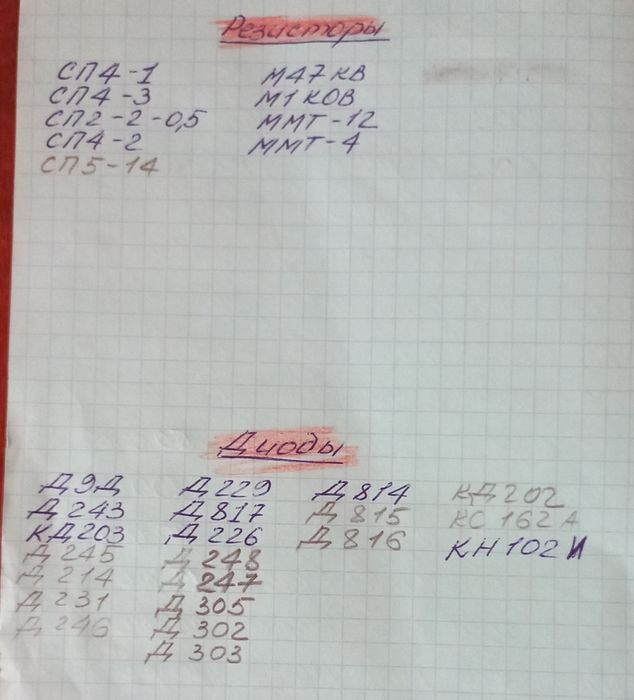 Резисторы
СП4-1 М47КВ
СП4-3 М1КОВ
СП2-2-0,5 ММТ-12
СП4-2 ММТ-4
СП5-14
Диоды
Д9Д Д229 Д814 КД202
Д243 Д817 Д815 КС162А
КД203 Д226 Д816 КН102И
Д245 Д248
Д214 Д247
Д231 Д305
Д246 Д302
Д303